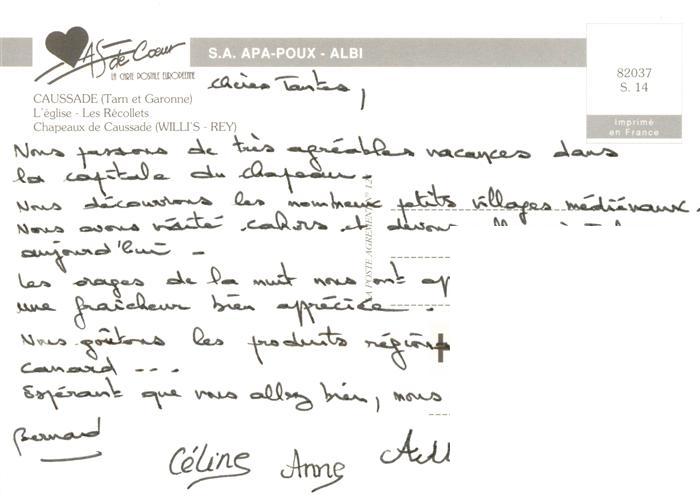 AS de Cœur
LA CARTE POSTALE EUROPÉENNE
S.A. APA-POUX - ALBI
82037
S. 14
Imprimé
en France
CAUSSADE (Tarn et Garonne)
L'église - Les Récollets
Chapeaux de Caussade (WILLI'S - REY)
LA POSTE AGREMENT N° 13
Chères Tantes,
Nous passons de très agréables vacances dans
la capitale du chapeau.
Nous découvrons les nombreux petits villages médiévaux.
Nous avons visité Cahors et
aujourd'hui -
Les orages de la nuit nous ont
une fraîcheur bien appréciée.
Nous goûtons les produits
canard ---
Espérant que vous allez bien, nous
Bernard
Céline Anne